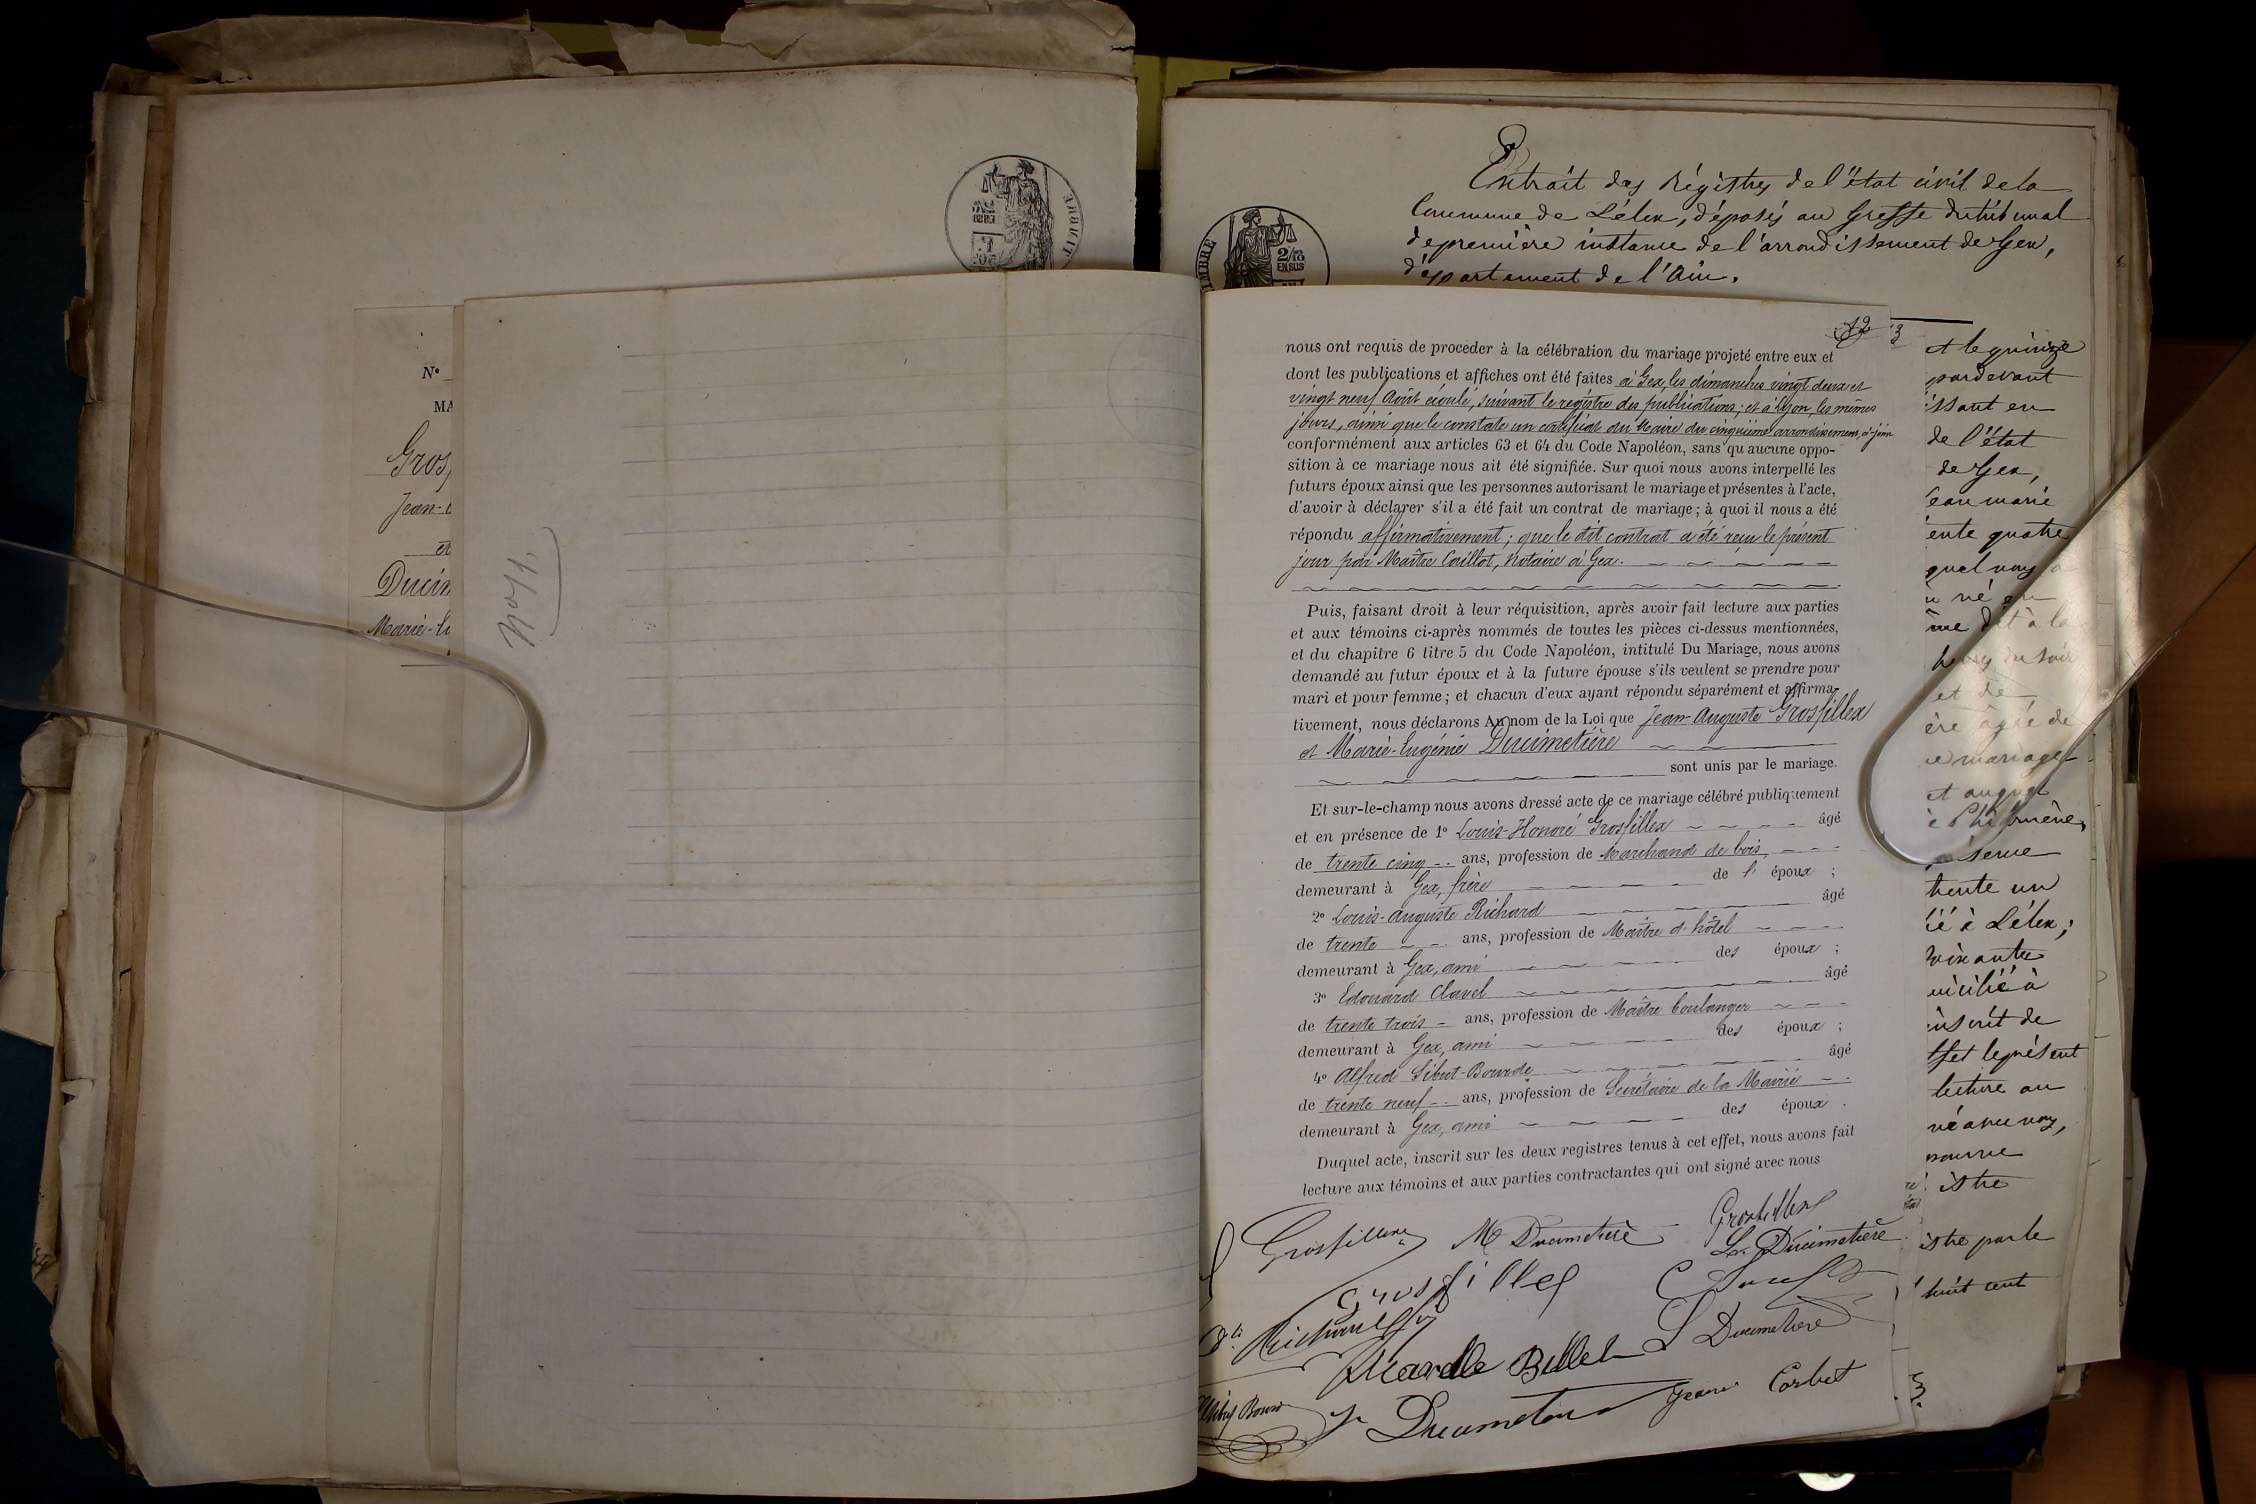 Nº
MA
Gros
Jean-
et
Ducim
Marie-Eu
TIMBRE
2/10
EN SUS
Extrait des Régistres de l'état civil de la
Commune de Lélex, déposés au Greffe du tribunal
de première instance de l'arrondissement de Gex,
département de l'Ain.
12
3
nous ont requis de procéder à la célébration du mariage projeté entre eux et
dont les publications et affiches ont été faites à Gex, les dimanches vingt deux et
vingt neuf Août écoulé, suivant le registre des publications; et à Lyon, les mêmes
jours, ainsi que le constate un certificat du Maire du cinquième arrondissement, ci-joint
conformément aux articles 63 et 64 du Code Napoléon, sans qu'aucune oppo-
sition à ce mariage nous ait été signifiée. Sur quoi nous avons interpellé les
futurs époux ainsi que les personnes autorisant le mariage et présentes à l'acte,
d'avoir à déclarer s'il a été fait un contrat de mariage; à quoi il nous a été
répondu affirmativement; que le dit contrat a été reçu le présent
jour par Maître Caillot, Notaire à Gex.
Puis, faisant droit à leur réquisition, après avoir fait lecture aux parties
et aux témoins ci-après nommés de toutes les pièces ci-dessus mentionnées,
et du chapitre 6 titre 5 du Code Napoléon, intitulé Du Mariage, nous avons
demandé au futur époux et à la future épouse s'ils veulent se prendre pour
mari et pour femme; et chacun d'eux ayant répondu séparément et affirma-
tivement, nous déclarons Au nom de la Loi que Jean-Auguste Grosfillex
et Marie-Eugénie Ducimetière
sont unis par le mariage.
Et sur-le-champ nous avons dressé acte de ce mariage célébré publiquement
et en présence de 1º Louis-Honoré Grosfillex âgé
de trente cinq ans, profession de Marchand de bois
demeurant à Gex, frère de l' époux ;
2º Louis-Auguste Richard âgé
de trente ans, profession de Maître d'hôtel
demeurant à Gex, ami des époux ;
3º Edouard Clavel âgé
de trente trois ans, profession de Maître boulanger
demeurant à Gex, ami des époux ;
4º Alfred Sibut-Bourde âgé
de trente neuf ans, profession de Secrétaire de la Mairie
demeurant à Gex, ami des époux.
Duquel acte, inscrit sur les deux registres tenus à cet effet, nous avons fait
lecture aux témoins et aux parties contractantes qui ont signé avec nous
Grosfillex M Ducimetière Grosfillex
Ls. Ducimetière
Grosfillex
Richard
L Ducimetière
Billet
Ducimetière Jean Corbet
et le quinze
pardevant
issant en
de l'état
de Gex,
Jean marie
ente quatre
quel nous a
né en
me dit à la
heures du soir
et de
ère âgée de
e mariage
et auquel
trente un
ié à Lélex;
soixante
icilié à
inscrit de
effet le présent
lecture au
né avec nous,
istre
istre par le
huit cent